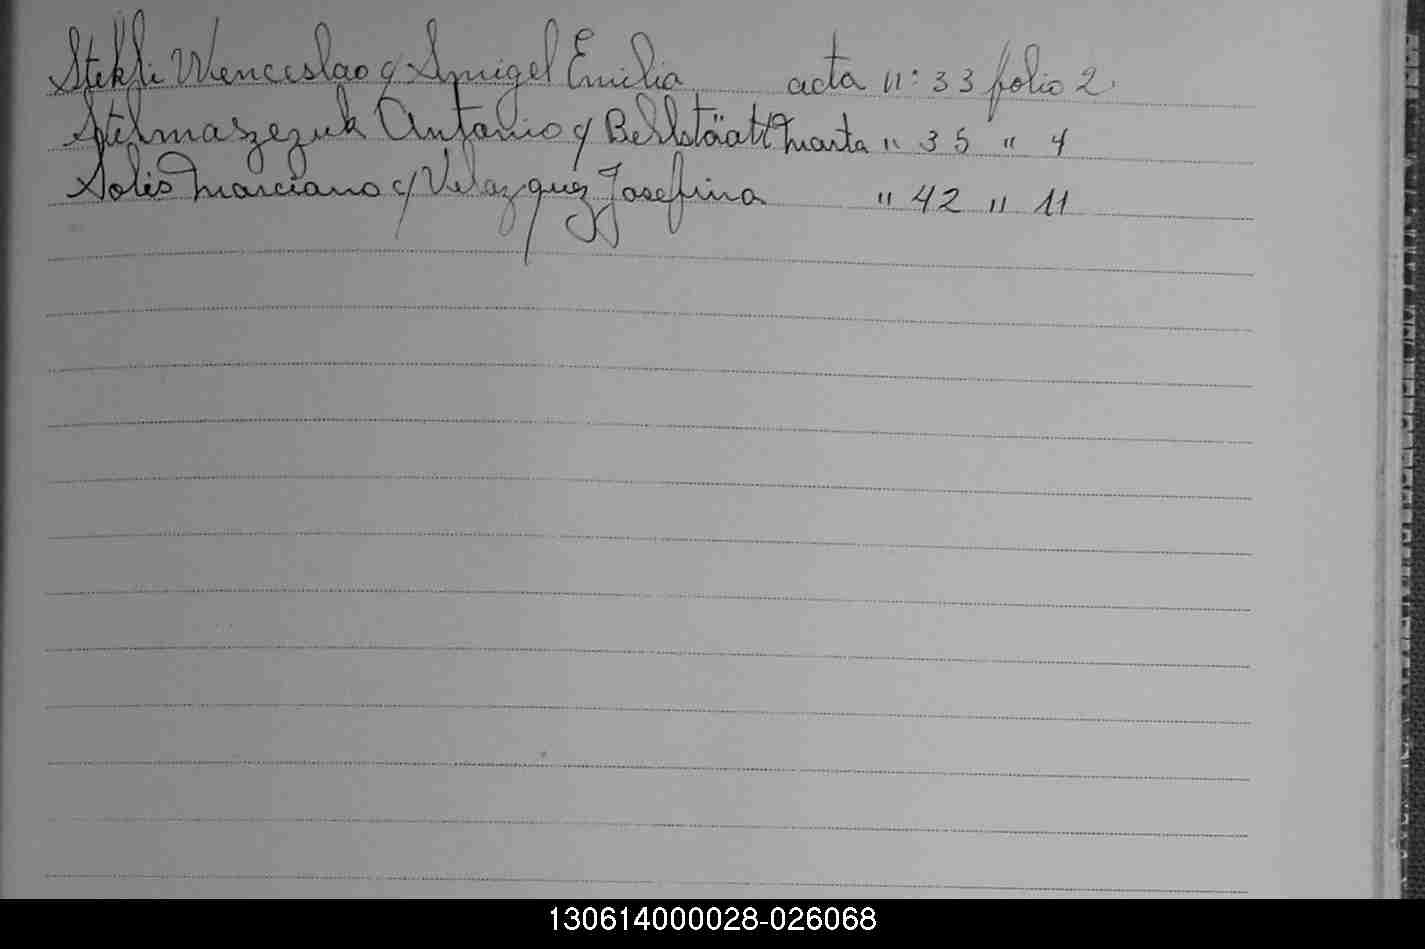 Stekli Wenceslao y Smigel Emilia acta n: 33 folio 2.
Stelmaszezuk Antonio y Berlstäatt Marta " 35 " 4
Solis Marciano y Velazquez Josefina " 42 " 11
130614000028-026068